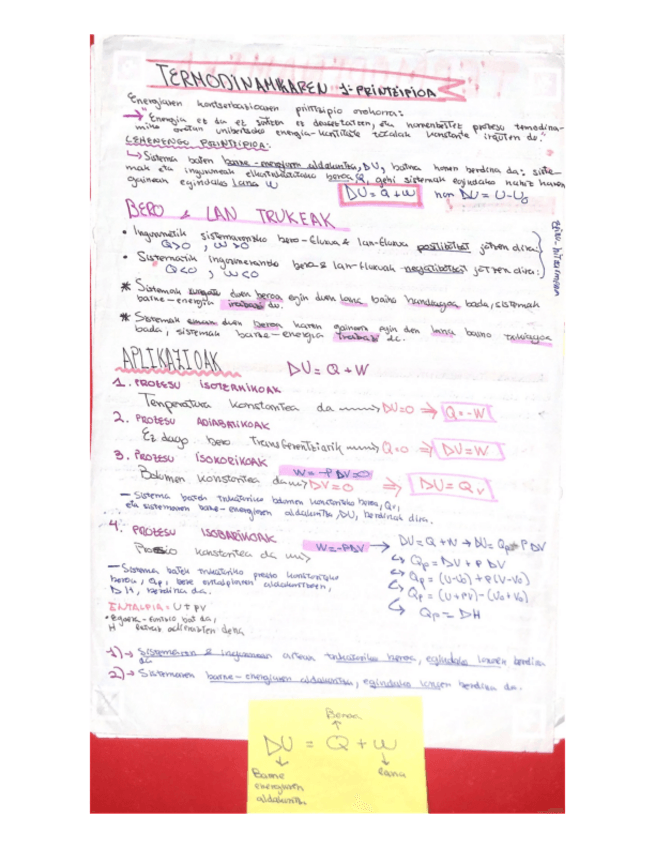 TERMODINAMIKAREN 1. PRINTZIPIOA
Energiaren kontserbazioaren printzipio orokorra:
→ "Energia ez da ez sortzen ez deuseztatzen, eta horrenbestez prozesu termodina-
miko orotan unibertsoko energia-kantitate totalak konstante irauten du."
LEHENENGO PRINTZIPIOA:
↳ Sistema baten barne-energiaren aldakuntza, DU, batura honen berdina da: siste-
mak eta inguruneak elkartrukatutako beroa Q, gehi sistemak egindako nahiz haren
gainean egindako lana W
DU = Q + W non DU = U-U₀
BERO & LAN TRUKEAK
• Ingurunetik sistemarainoko bero-fluxua & lan-fluxua positibotzat jotzen dira:
Q>0 , W>0
• Sistematik ingurunerainoko bero & lan-fluxuak negatibotzat jotzen dira:
Q<0 , W<0
* Sistemak duen beroa egin duen lana baino handiagoa bada, sistemak
barne-energia irabazi du.
* Sistemak duen beroa haren gainean egin den lana baino txikiagoa
bada, sistemak barne-energia du.
APLIKAZIOAK DU = Q + W
1. PROZESU ISOTERMIKOAK
Tenperatura konstantea da → DU=0 ⇒ Q=-W
2. PROZESU ADIABATIKOAK
Ez dago bero transferentziarik → Q=0 ⇒ DU=W
3. PROZESU ISOKORIKOAK
W = -P DV=0
Bolumen konstantea da → DV=0 ⇒ DU=Qv
— Sistema batek trukaturiko bolumen konstanteko beroa, Qv,
eta sistemaren barne-energiaren aldakuntza, DU, berdinak dira.
4. PROZESU ISOBARIKOAK
Presio konstantea da W=-PDV → DU=Q+W → DU=Qp-P DV
↳ Qp = DU + P DV
↳ Qp = (U-U₀) + P(V-V₀)
↳ Qp = (U+PV)-(U₀+V₀)
↳ Qp = DH
— Sistema batek trukaturiko presio konstanteko
beroa, Qp, bere entalpiaren aldakuntzaren,
DH, berdina da.
ENTALPIA = U + PV
• Egoera-funtzio bat da,
H
1) → Sistemaren & ingurunearen artean trukaturiko beroa, egindako lanaren berdina
da
2) → Sistemaren barne-energiaren aldakuntza, egindako lanaren berdina da.
Beroa
↑
DU = Q + W
↓ ↓
Barne Lana
energiaren
aldakuntza